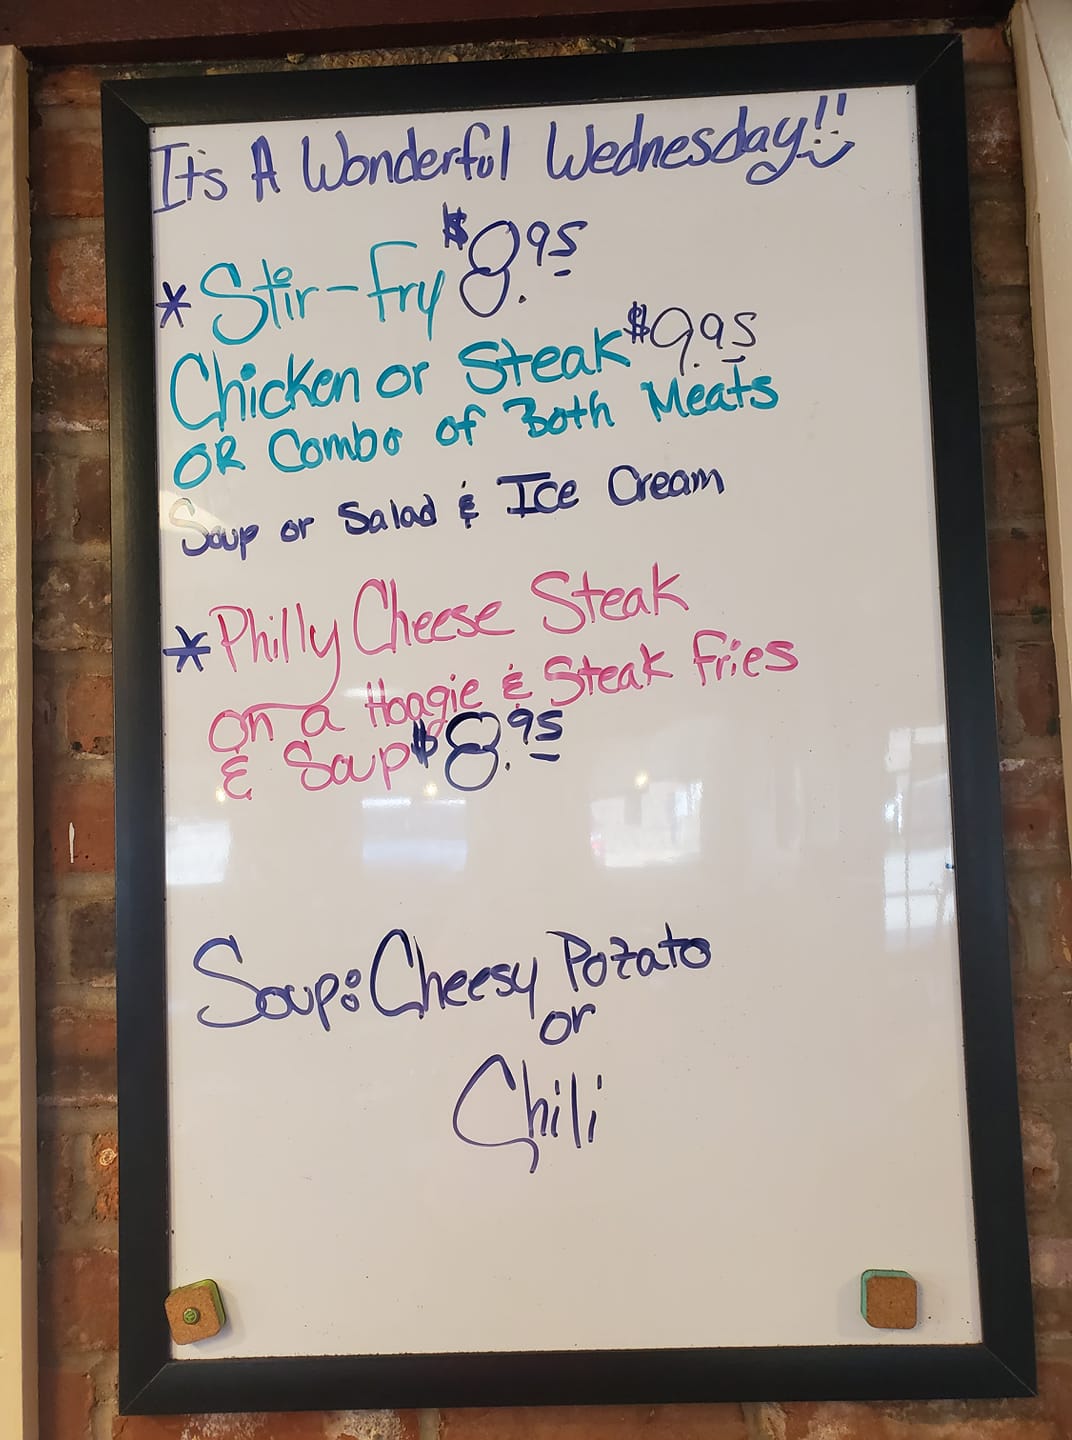 It's A Wonderful Wednesday!!
* Stir-Fry $8.95
Chicken or Steak $9.95
OR Combo of Both Meats
Soup or Salad & Ice Cream
* Philly Cheese Steak
on a Hoagie & Steak Fries
& Soup $8.95
Soup: Cheesy Potato
or
Chili